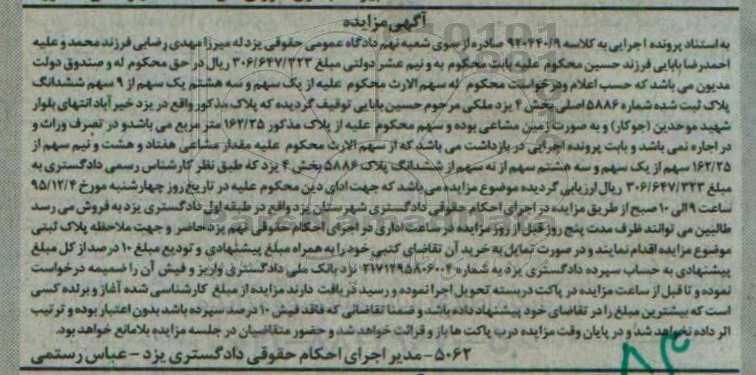 آگهی مزایده
به استناد پرونده اجرایی به کلاسه ۹۲۰۴۴۰/۹ صادره از سوی شعبه نهم دادگاه عمومی حقوقی یزد له میرزا مهدی رضایی فرزند محمد و علیه
احمدرضا بابایی فرزند حسین محکوم علیه بابت محکوم به و نیم عشر دولتی مبلغ ۳۰۶/۶۴۷/۳۲۳ ریال در حق محکوم له و صندوق دولت
مدیون می باشد که حسب اعلام و درخواست محکوم له سهم الارث محکوم علیه از یک سهم و سه هشتم یک سهم از ۹ سهم ششدانگ
پلاک ثبت شده شماره ۵۸۸۶ اصلی بخش ۴ یزد ملکی مرحوم حسین بابایی توقیف گردیده که پلاک مذکور واقع در یزد خیر آباد انتهای بلوار
شهید موحدین (جوکار) و به صورت زمین مشاعی بوده و سهم محکوم علیه از پلاک مذکور ۱۶۲/۲۵ متر مربع می باشد و در تصرف وراث و
در اجاره نمی باشد و بابت پرونده اجرایی در بازداشت می باشد که از سهم الارث محکوم علیه مقدار مشاعی هفتاد و هشت و نیم سهم از
۱۶۲/۲۵ سهم از یک سهم و سه هشتم سهم از نه سهم از ششدانگ پلاک ۵۸۸۶ بخش ۴ یزد که طبق نظر کارشناس رسمی دادگستری به
مبلغ ۳۰۶/۶۴۷/۳۲۳ ریال ارزیابی گردیده موضوع مزایده می باشد که جهت ادای دین محکوم علیه در تاریخ روز چهارشنبه مورخ ۹۵/۱۲/۴
ساعت ۹ الی ۱۰ صبح از طریق مزایده در اجرای احکام حقوقی دادگستری شهرستان یزد واقع در طبقه اول دادگستری یزد به فروش می رسد
طالبین می توانند ظرف مدت پنج روز قبل از روز مزایده در ساعت اداری در اجرای احکام حقوقی نهم یزد حاضر و جهت ملاحظه پلاک ثبتی
موضوع مزایده اقدام نمایند و در صورت تمایل به خرید آن تقاضای کتبی خود را به همراه مبلغ پیشنهادی و تودیع مبلغ ۱۰ درصد از کل مبلغ
پیشنهادی به حساب سپرده دادگستری یزد به شماره ۲۱۷۱۲۹۵۸۰۶۰۰۴ نزد بانک ملی دادگستری واریز و فیش آن را ضمیمه درخواست
نموده و تا قبل از ساعت مزایده در پاکت دربسته تحویل اجرا نموده و رسید دریافت دارند مزایده از مبلغ کارشناسی شده آغاز و برنده کسی
است که بیشترین مبلغ را در تقاضای خود پیشنهاد داده باشد و ضمنا تقاضائی که فاقد فیش ۱۰ درصد سپرده باشد بدون اعتبار بوده و ترتیب
اثر داده نخواهد شد و در پایان وقت مزایده درب پاکت ها باز و قرائت خواهد شد و حضور متقاضیان در جلسه مزایده بلامانع خواهد بود.
۵۰۶۲- مدیر اجرای احکام حقوقی دادگستری یزد - عباس رستمی